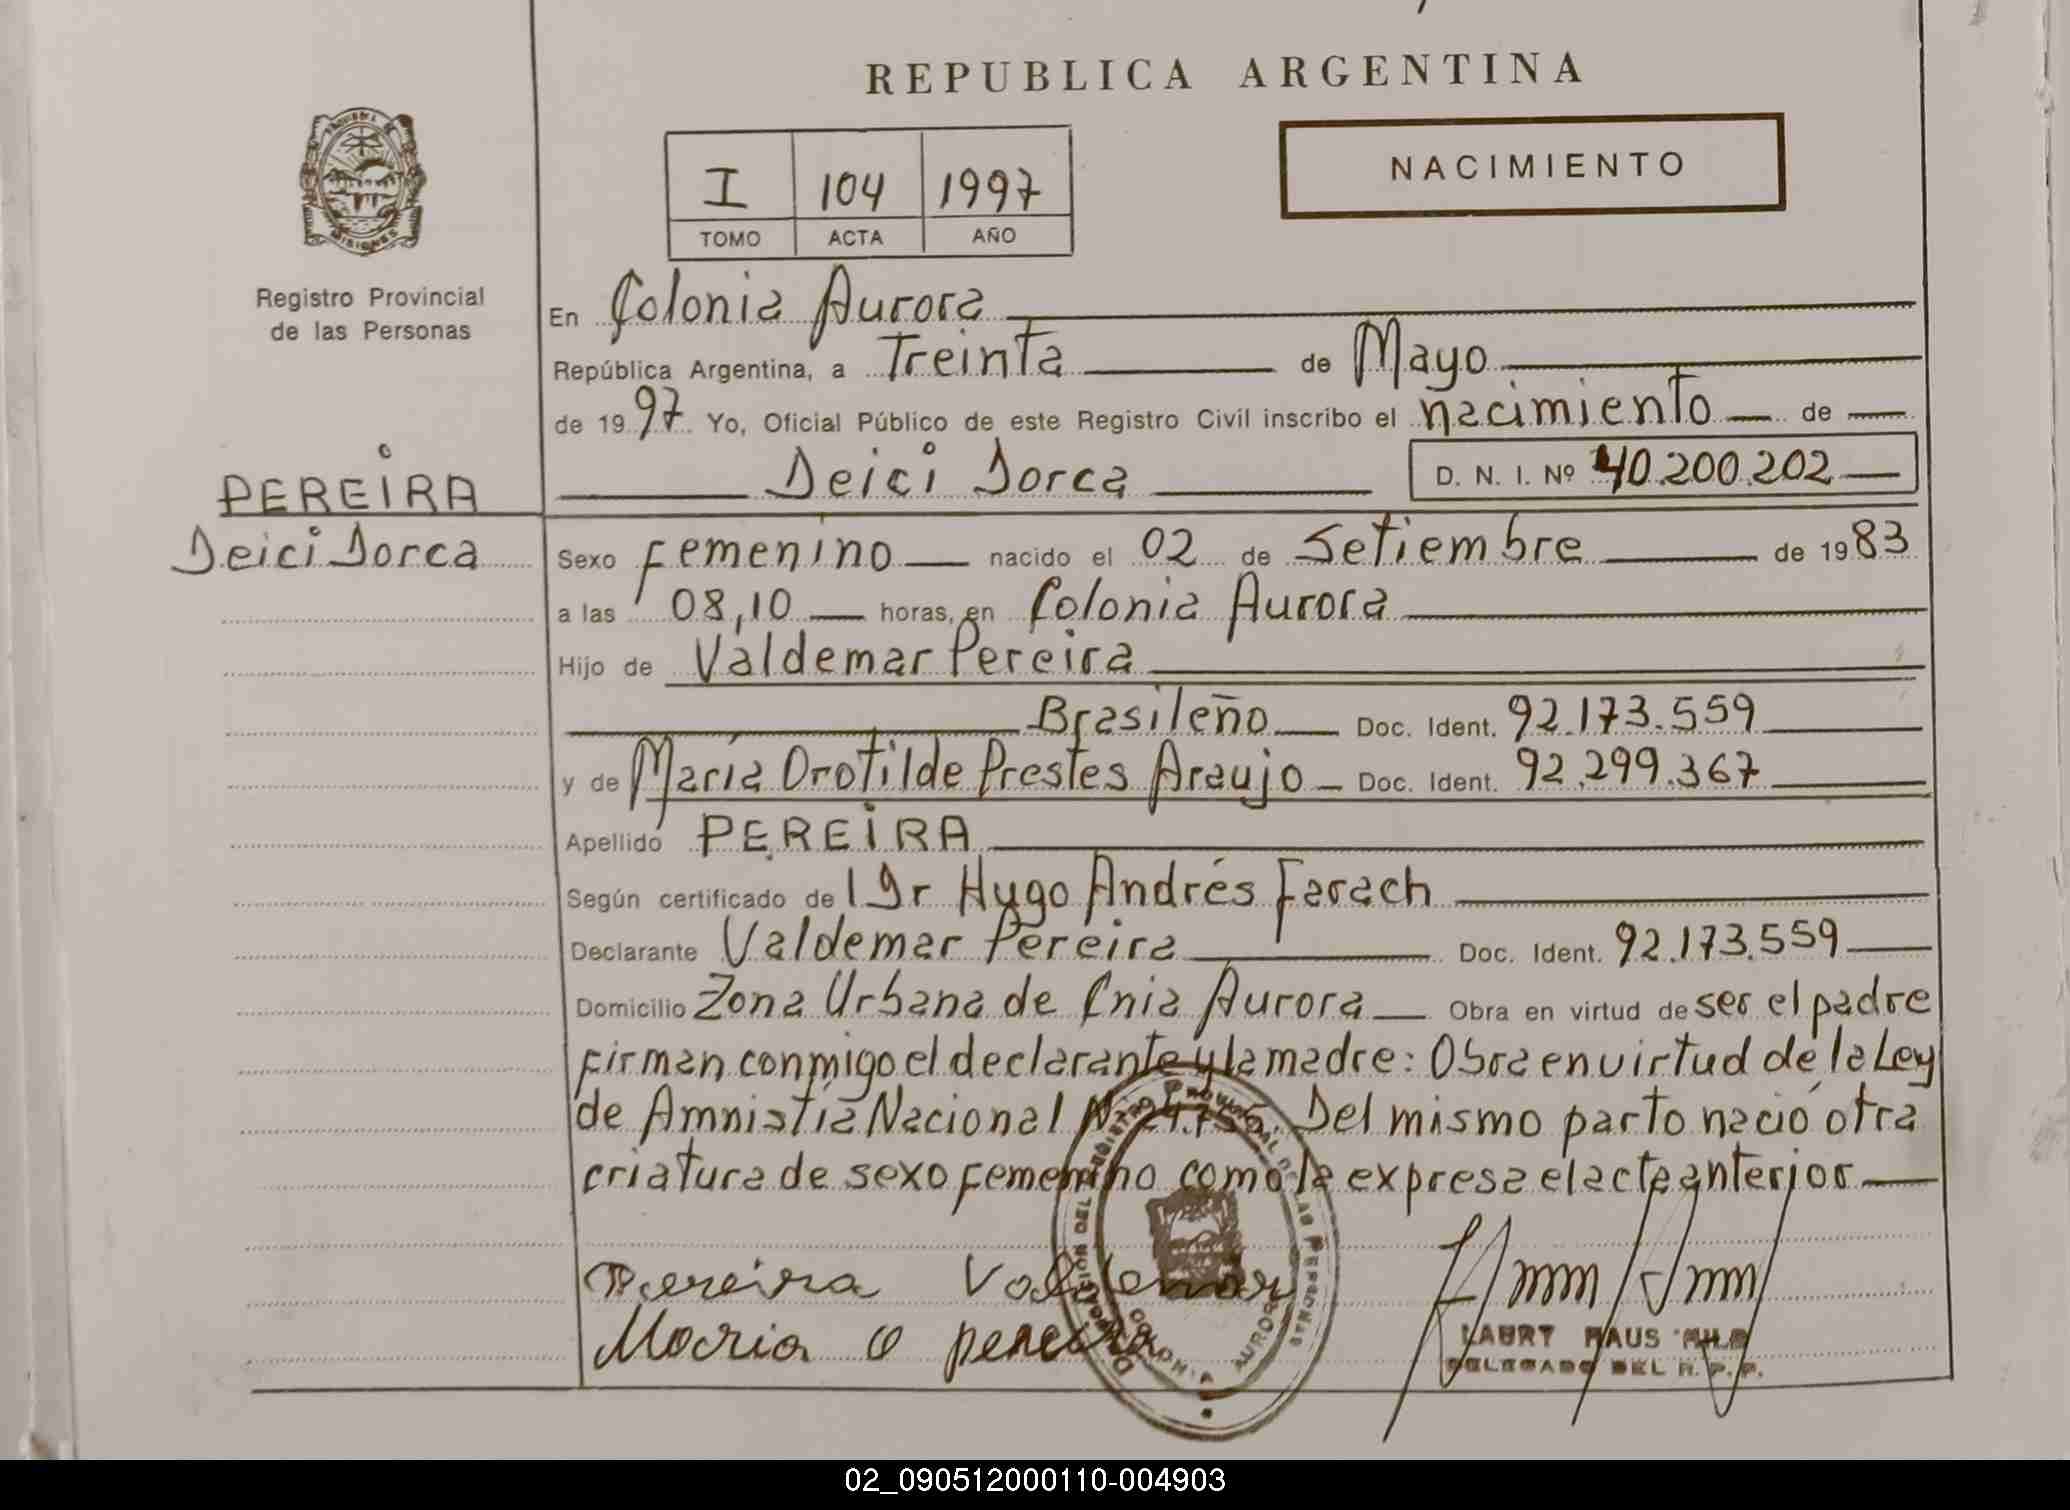 REPUBLICA ARGENTINA
NACIMIENTO
I 104 1997
TOMO ACTA AÑO
MISIONES
Registro Provincial
de las Personas
PEREIRA
Deici Dorca
En Colonia Aurora
República Argentina, a Treinta de Mayo
de 1997 Yo, Oficial Público de este Registro Civil inscribo el nacimiento de
Deici Dorca D. N. I. Nº 40.200.202
Sexo Femenino nacido el 02 de Setiembre de 1983
a las 08,10 horas, en Colonia Aurora
Hijo de Valdemar Pereira
Brasileño Doc. Ident. 92.173.559
y de María Orotilde Prestes Araujo Doc. Ident. 92.299.367
Apellido PEREIRA
Según certificado de l Dr Hugo Andrés Farach
Declarante Valdemar Pereira Doc. Ident. 92.173.559
Domicilio Zona Urbana de Cnia Aurora Obra en virtud de ser el padre
firman conmigo el declarante y la madre: Obra en virtud de la Ley
de Amnistía Nacional Nº 24.755. Del mismo parto nació otra
criatura de sexo femenino como la expresa el acta anterior
Pereira Valdemar
Maria O pereira
COLONIA AURORA
DELEGADO DEL R. P. P.
02_090512000110-004903